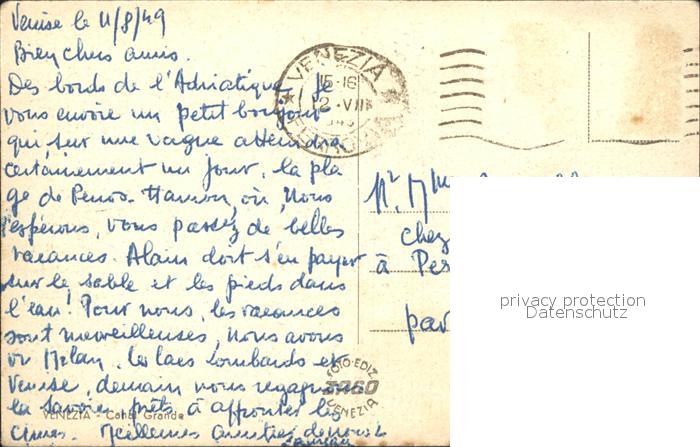 Venise le 11/8/49
Bien chers amis.
Des bords de l'Adriatique Je
vous envoie un petit bonjour
qui sur une vague attendra
certainement un jour, la pla
ge de Penn- Hamon, où, Nous
l'espérons, vous passez de belles
vacances. Alain doit s'en payer
sur le sable et les pieds dans
l'eau! Pour nous, les vacances
sont merveilleuses, nous avons
vu Milan, les lacs Lombards et
Venise, demain nous regagnons
la Savoie prêts à affronter les
cimes. Meilleures amitiés de nous 2
VENEZIA - Canal Grande
VENEZIA
15-16
12·VIII
FERROVIA
FOTO-EDIZ
ZAGO
VENEZIA
Mr. Mme
chez
à Pe
par
privacy protection
Datenschutz